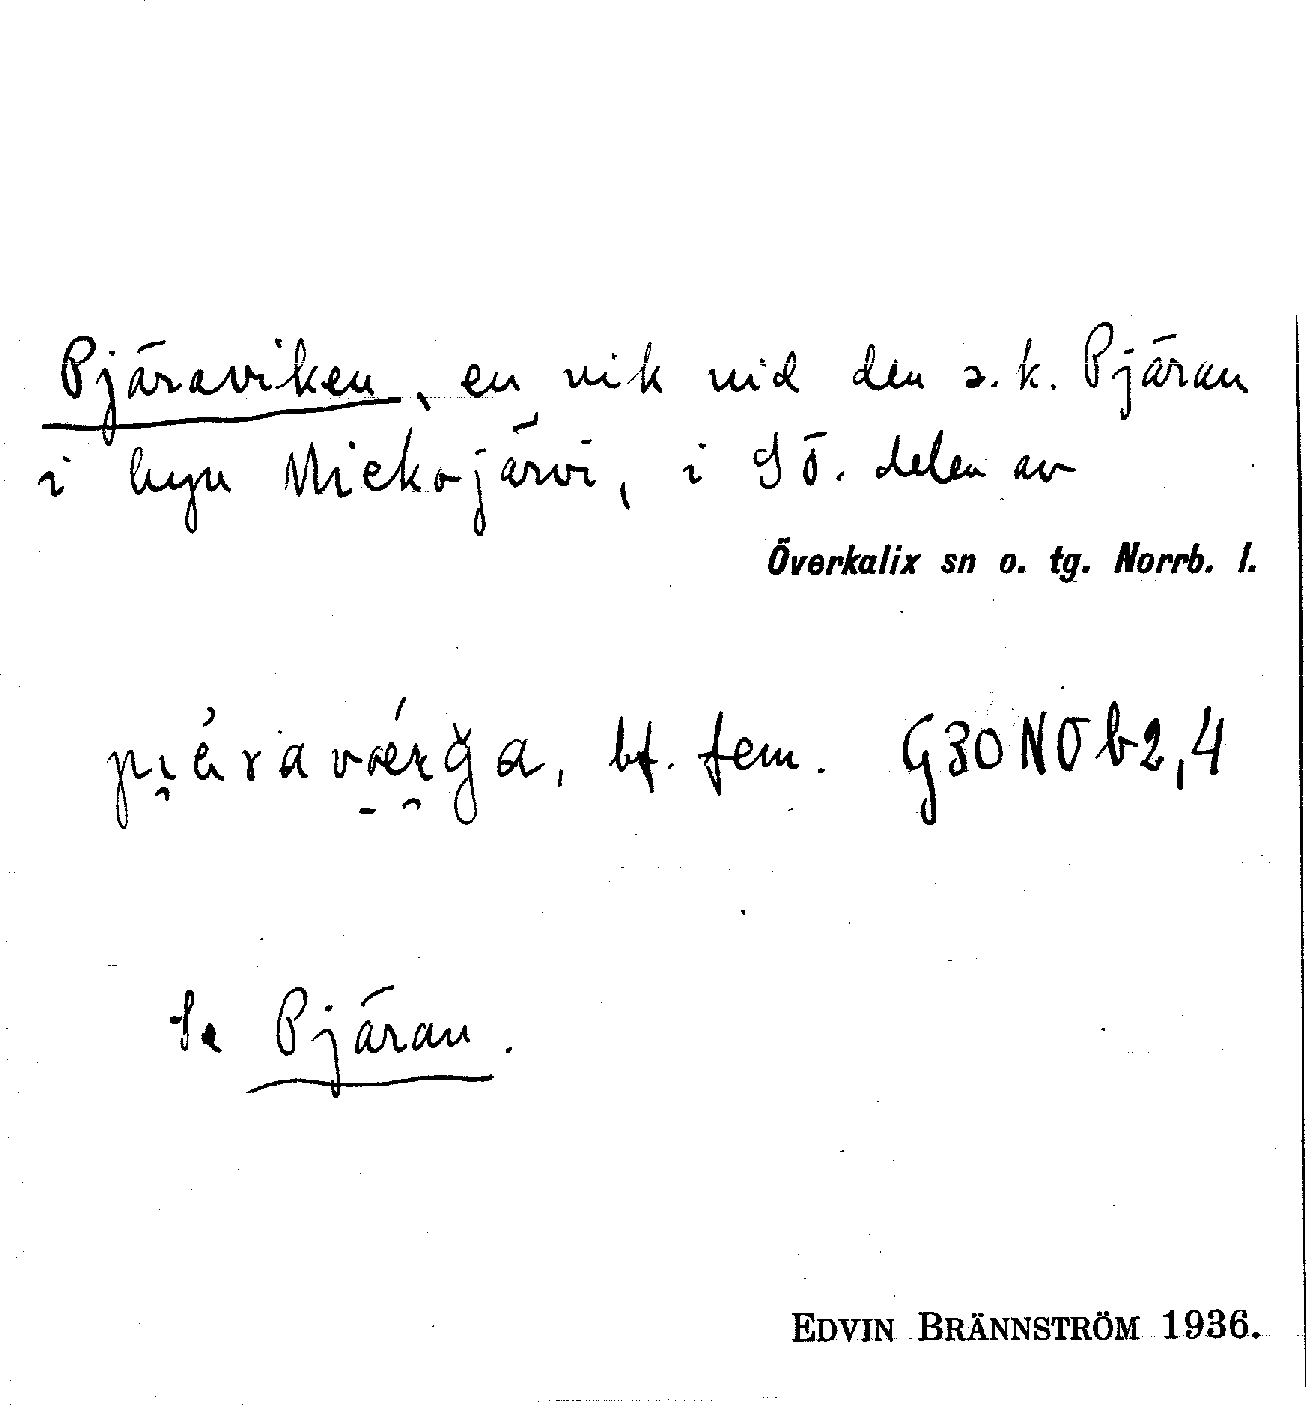 Pjäraviken, en vik vid den s. k. Pjäran
i byn Mickojärvi, i SÖ. delen av
Överkalix sn o. tg. Norrb. l.
bf. fem. G30NOb2,4
Se Pjäran.
EDVIN BRÄNNSTRÖM 1936.